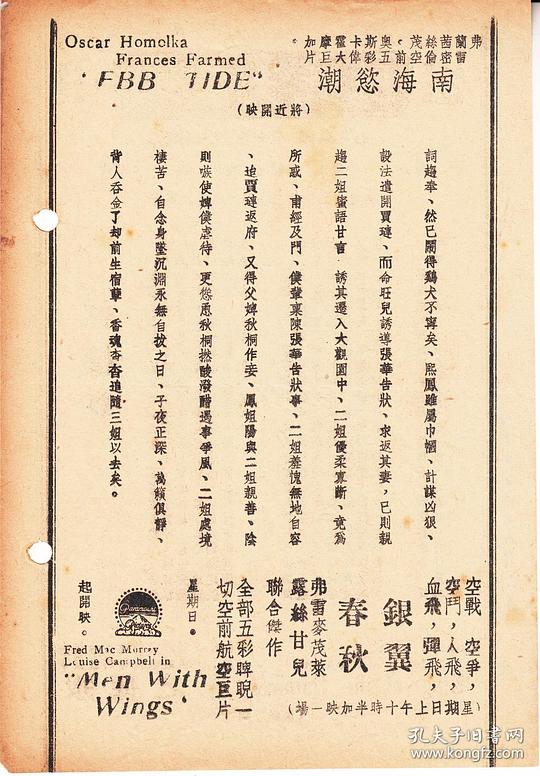 Oscar Homolka
Frances Farmed
"EBB TIDE"
弗蘭雷
茜密
絲倫
茂空
。前
奧五
斯彩
卡偉
霍大
摩巨
加片
。
南海慾潮
(將近開映)
詞趨奉、然已鬧得鷄犬不寧矣、熙鳳雖屬巾幗、計謀凶狠、
設法遣開賈璉、而命旺兒誘導張華告狀、求返其妻、已則親
趨二姐蜜語甘言 誘其遷入大觀園中、二姐優柔寡斷、竟為
所惑、甫經及門、僕輩稟陳張華告狀事、二姐羞愧無地自容
、迨賈璉返府、又得父婢秋桐作妾、鳳姐陽與二姐親善、陰
則嗾使婢僕虐待、更慫恿秋桐撚酸潑醋遇事爭風、二姐處境
棲苦、自念身墜沉淵永無自拔之日、子夜正深、萬籟俱靜、
背人吞金了却前生宿孽、香魂杳杳追隨三姐以去矣。
空戰 空爭，
空鬥，人飛，
血飛，彈飛，
銀翼
春秋
弗雷麥茂萊
露絲甘兒
聯合傑作
全部五彩睥睨一
切空前航空巨片
星期日。
起開映。
(星期日上午十時半加映一場)
Paramount
Fred Mac Murrey
Louise Campbell in
"Men With
Wings"
孔夫子旧书网
book.kongfz.com